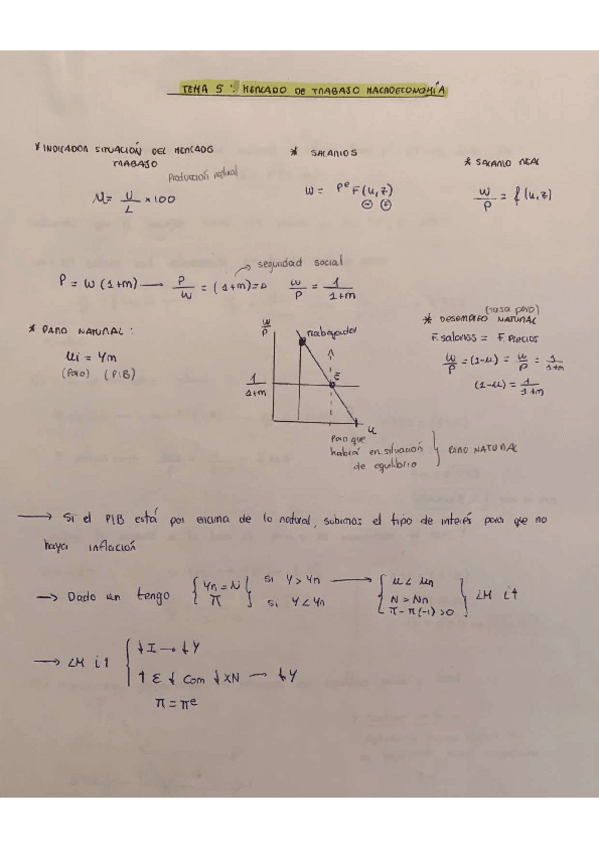 TEMA 5: MERCADO DE TRABAJO MACROECONOMÍA
* INDICADOR SITUACIÓN DEL MERCADO
TRABAJO
Producción natural
M = U/L × 100
* SALARIOS
W = Pᵉ F(u,z)
⊖ ⊕
* SALARIO REAL
W/P = f(u,z)
seguridad social
P = W(1+m) → P/W = (1+m) = W/P = 1/1+m
* PARO NATURAL:
Ui = Yn
(Paro) (PIB)
W/P
trabajador
1/1+m
E
u
Paro que
habrá en situación
de equilibrio
} PARO NATURAL
(tasa paro)
* DESEMPLEO NATURAL
F. salarios = F. Precios
W/P = (1-u) = W/P = 1/1+m
(1-u) = 1/1+m
→ Si el PIB está por encima de lo natural, subimos el tipo de interés para que no
haya inflación
→ Dado un tengo { Yn = N π } si Y > Yn → { u < un
si Y < Yn N > Nn
π - π(-1) > 0 } LM i↑
→ LM i↑ { ↓I → ↓Y
↑E ↓ Com ↓XN → ↓Y
π = πᵉ